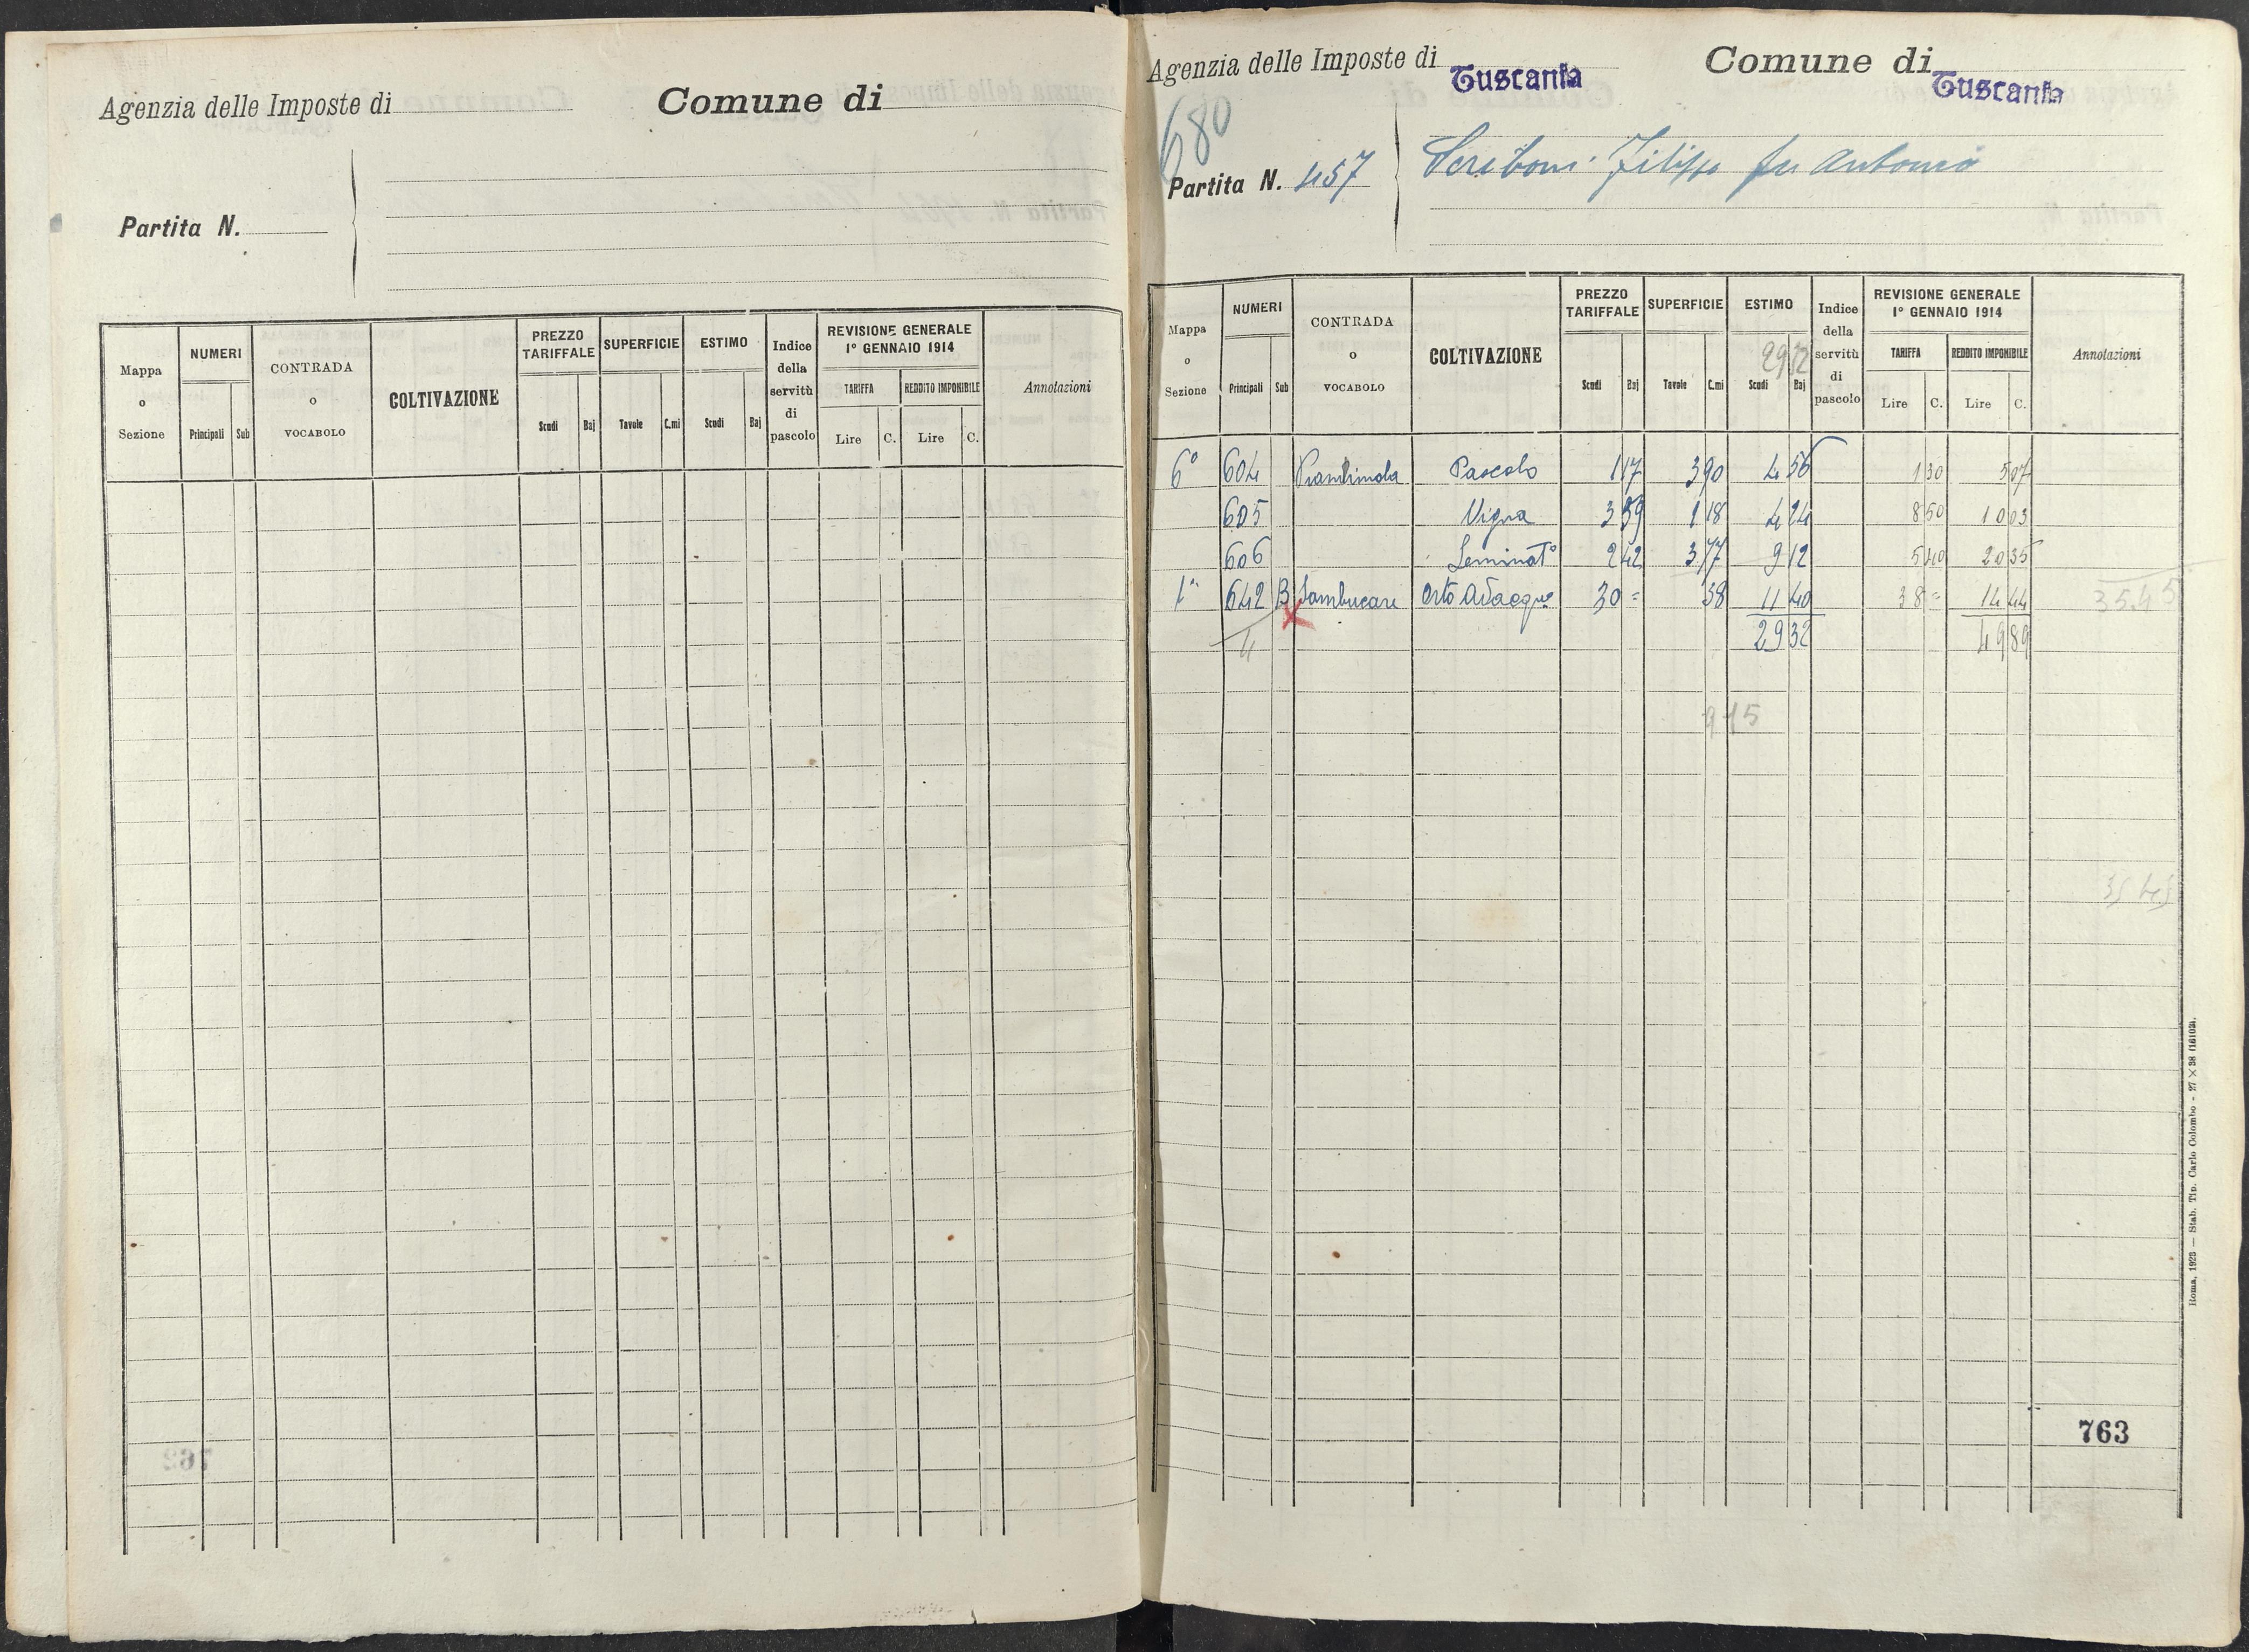 Agenzia delle Imposte di
Comune di
Partita N.
Mappa o Sezione
NUMERI
Principali Sub
CONTRADA o VOCABOLO
COLTIVAZIONE
PREZZO TARIFFALE
Scudi Baj
SUPERFICIE
Tavole C.mi
ESTIMO
Scudi Baj
Indice della servitù di pascolo
REVISIONE GENERALE 1º GENNAIO 1914
TARIFFA REDDITO IMPONIBILE
Lire C. Lire C.
Annotazioni
Agenzia delle Imposte di Tuscania
Comune di Tuscania
680
Partita N. 457
Scriboni Filippo fu Antonio
Mappa o Sezione
NUMERI
Principali Sub
CONTRADA o VOCABOLO
COLTIVAZIONE
PREZZO TARIFFALE
Scudi Baj
SUPERFICIE
Tavole C.mi
ESTIMO
2932
Scudi Baj
Indice della servitù di pascolo
REVISIONE GENERALE 1º GENNAIO 1914
TARIFFA REDDITO IMPONIBILE
Lire C. Lire C.
Annotazioni
6º 604 Pascolo 1 17 3 90 4 56 1 30 5 07
605 Vigna 3 59 1 18 4 24 8 50 10 03
606 Seminatº 2 42 3 77 9 12 5 40 20 35
1ª 642 B Sambucare Orto Adacque 30 = 38 11 40 38 = 14 44 35.45
4 29 32 49 89
9 45
35 45
763
Roma, 1923 — Stab. Tip. Carlo Colombo - 27 × 38 (16103).